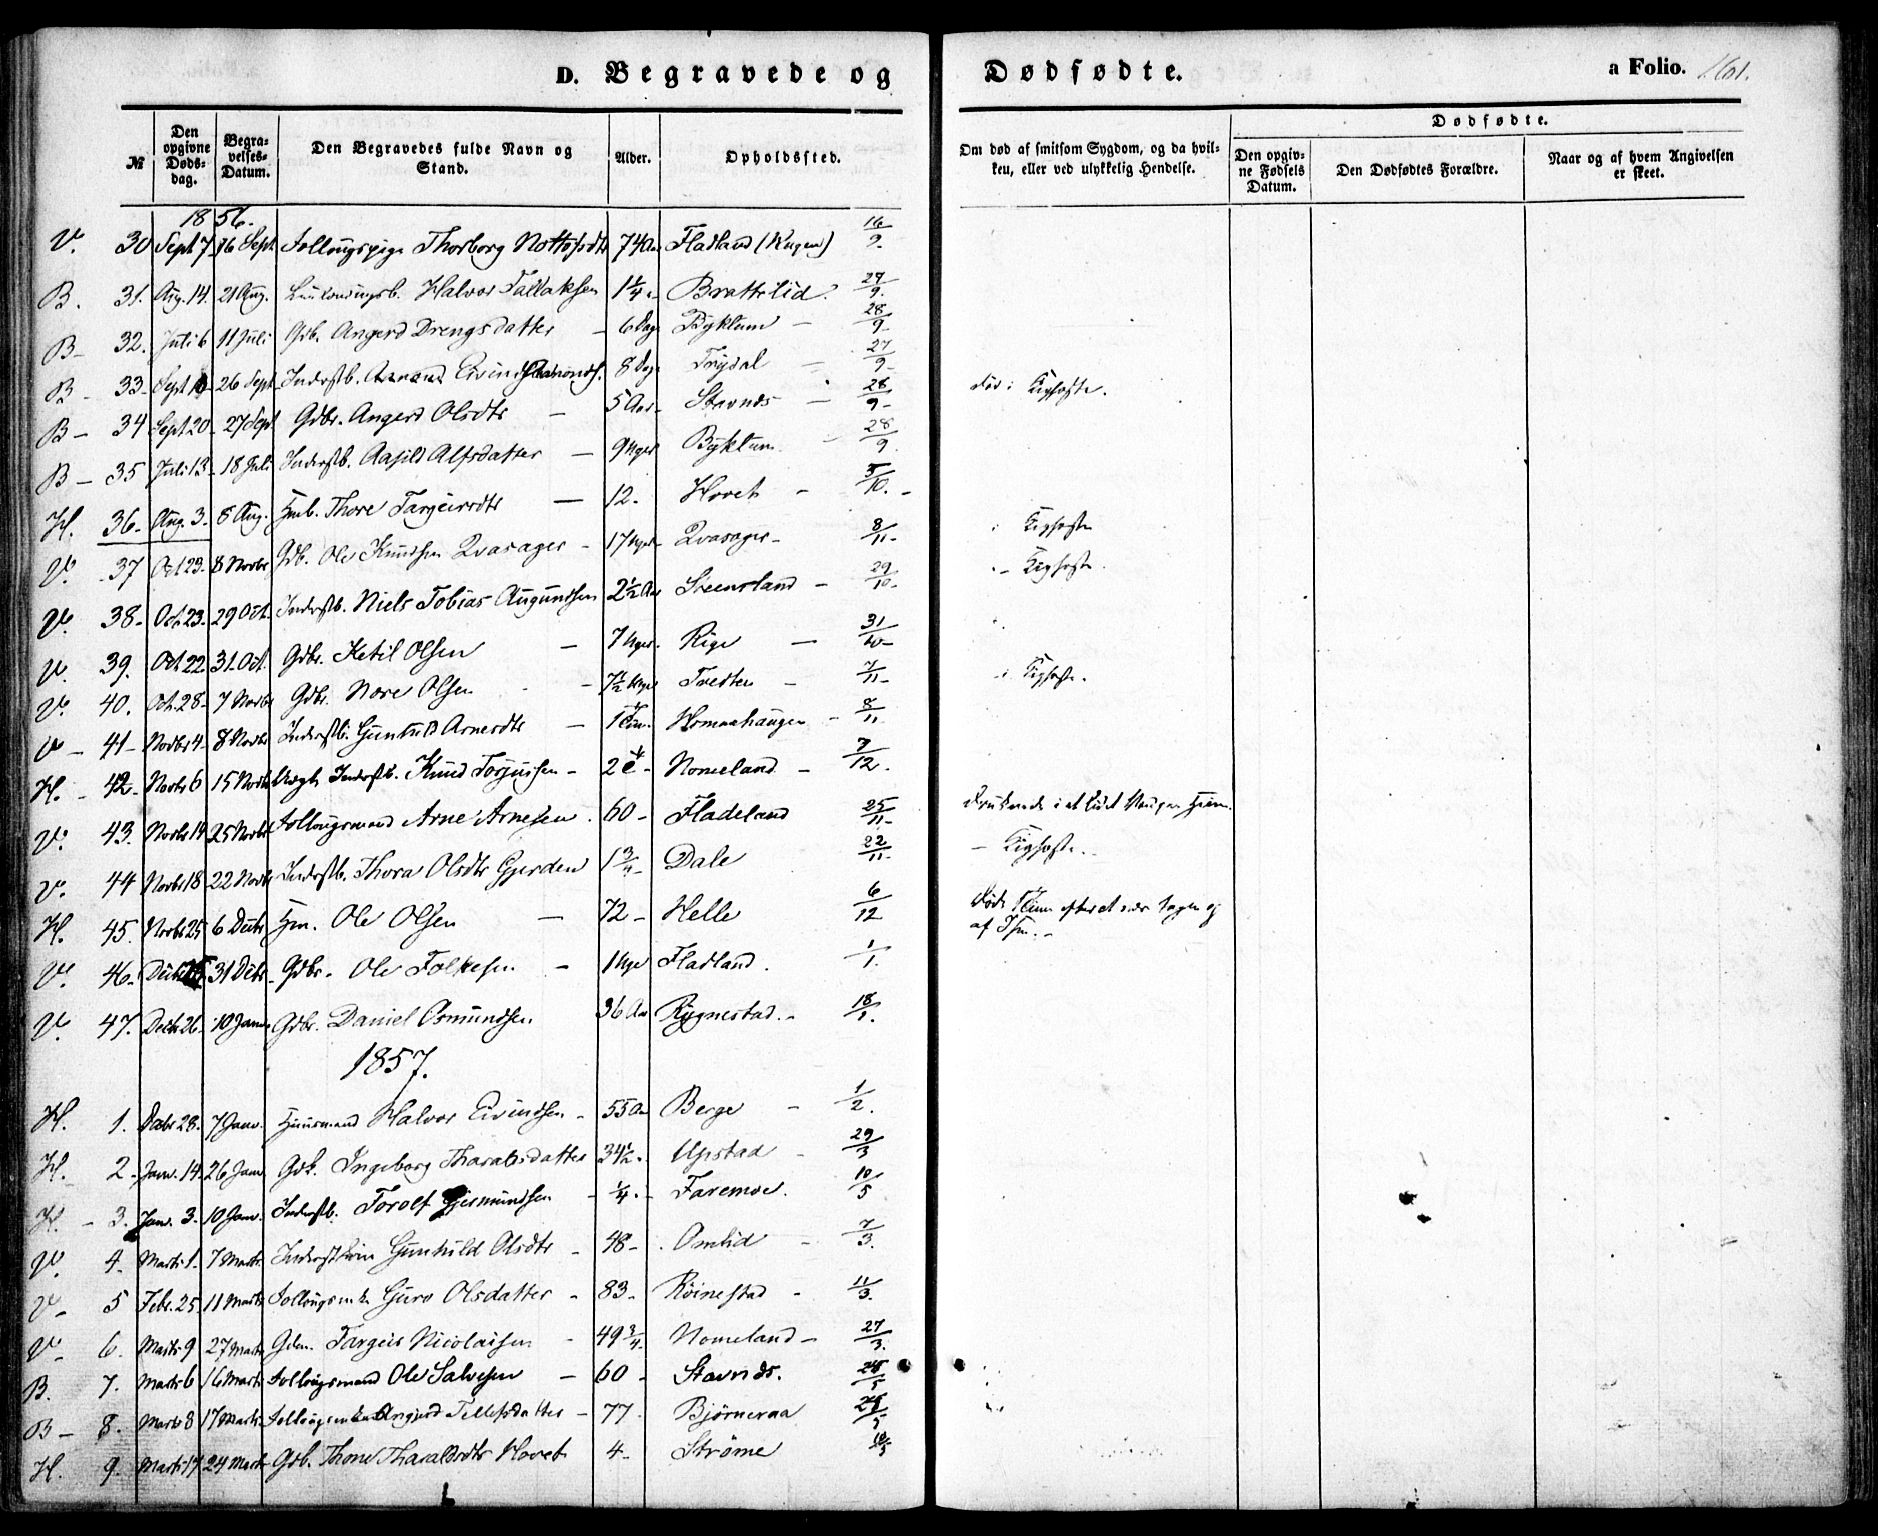 D. Begravede og Dødsødte.
a Folio. 161.
№ Den opgivne Døds-dag. Begra-velses-Datum. Den Begravedes fulde Navn og Stand. Alder. Opholdssted. Om død af smitsom Sygdom, og da hvil-ken, eller ved ulykkelig Hendelse. Dødfødte. Den opgiv-ne Fødsels Datum. Den Dødfødtes Forældre. Naar og af hvem Angivelsen er skeet.
1856.
V. 30 Sept 7 16 Sept. Thorborg 74 Aar Fladland 16/9.
B. 31. Aug. 14. 21 Aug. Halvor Tallaksen 1 1/4 Brattelid. 27/9.
B- 32. Juli 6 11 Juli Gdb. Angerd Drengsdatter - 6 Dage Byklum - 28/9-
B- 33- Sept 26 Sept Inderstb. 8 Dage Trydal - 27/9-
B- 34 Sept 20- 27 Sept Gdbr. Angerd Olsdtr - 5 Aar- Stavnes - 28/9- død i Kighoste.
B- 35 Juli 13- 18 Juli Inderstb. Aasild Alfsdatter - 9 Uger Byklum 28/9.
H. 36- Aug. 3- 8 Aug. Hmb. Thore Targeirsdtr - 12. Hovet - 5/10.-
V. 37 Oct 23- 8 Novbr Gdb. Ole Knudsen Qvasager - 17 Uger- Qvasager- 8/11- i Kighoste
V. 38- Oct 23- 29 Oct. Inderstb. Niels Tobias Augundsen 2 1/2 Aar Steensland - 29/10- - Kighoste.
V. 39. Oct 22. 31. Oct. Gdbr. Ketil Olsen - 7 Uger. Rige - 31/10-
V. 40. Oct. 28- 7 Novbr Gdbr. Nore Olsen - 7 1/2 Uger Tveiten - 7/11- i Kighoste.
V- 41- Novbr 4- 8 Novbr Inderstb. Gunhild Arnesdtr - 1 Time. Homnahaugen - 8/11-
H. 42- Novbr 6 15 Novbr Inderstb. Knud Torjusen - 2 Nomeland - 7/12.
V. 43. Novbr 14 25 Novbr Follougsmand Arne Arnesen. 60- Fladeland 25/11-
V. 44 Novbr 18- 22 Novbr Inderstb. Thora Olsdtr Gjerden 1 3/4- Dale 22/11- - Kighoste.-
H. 45. Novbr 25 6 Decbr Hm. Ole Olsen - 72- Helle 6/12
V. 46- 31 Decbr- Gdbr. Ole Folkesen - 1 Uge Fladland. 1/1.
V. 47. Decbr 26- 10 Janv. Gdbr. Daniel Osmundsen 36 Aar Rygnestad.- 18/1.
1857.
H. 1. Decbr 28. 7 Janv. Huusmand Halvor Eivindsen - 55 Aar Berge - 1/2.
H. 2- Janv. 14. 26 Janv. Gdk. Ingeborg Tharaldsdatter 34 1/2- Upstad - 29/3
H.- 3. Janv. 3- 10 Janv. Inderstb. Torolf Gjermundsen - 1/4.- Faremoe. 10/5
V. 4- Marts 1- 7 Marts. Gunhild Olsdtr - 48- Omlid - 7/3.
V- 5 Febr. 25. 11 Marts Guro Olsdatter - 83- Røinestad - 11/3.
V- 6. Marts 9 27 Marts Gdm. Targeir Nicolaisen - 49 3/4- Nomeland- 27/3.
B. 7. Marts 6 16 Marts Follougsmand Ole Salvesen - 60- Stavnes. 28/5
B- 8. Marts 8 17 Marts Tellefsdatter - 77. Bjørneraa
H. 9. Marts 17 24 Marts Gdb. Thone Tharaldsdtr Hovet 4- Strøme 10/5